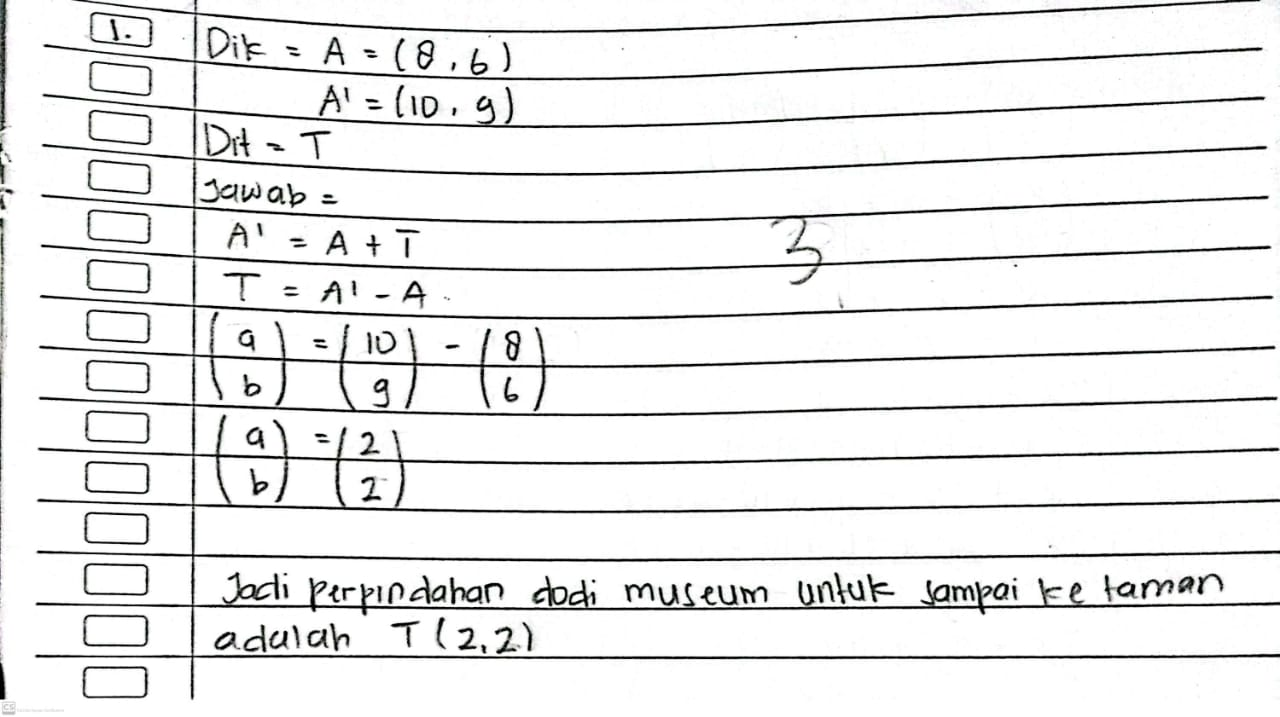 1. Dik = A = (8, 6)
A' = (10, 9)
Dit = T
Jawab =
A' = A + T
3
T = A' - A
(a) = (10) - (8)
(b) (9) (6)
(a) = (2)
(b) (2)
Jadi perpindahan dodi museum untuk sampai ke taman
adalah T (2,2)
CS